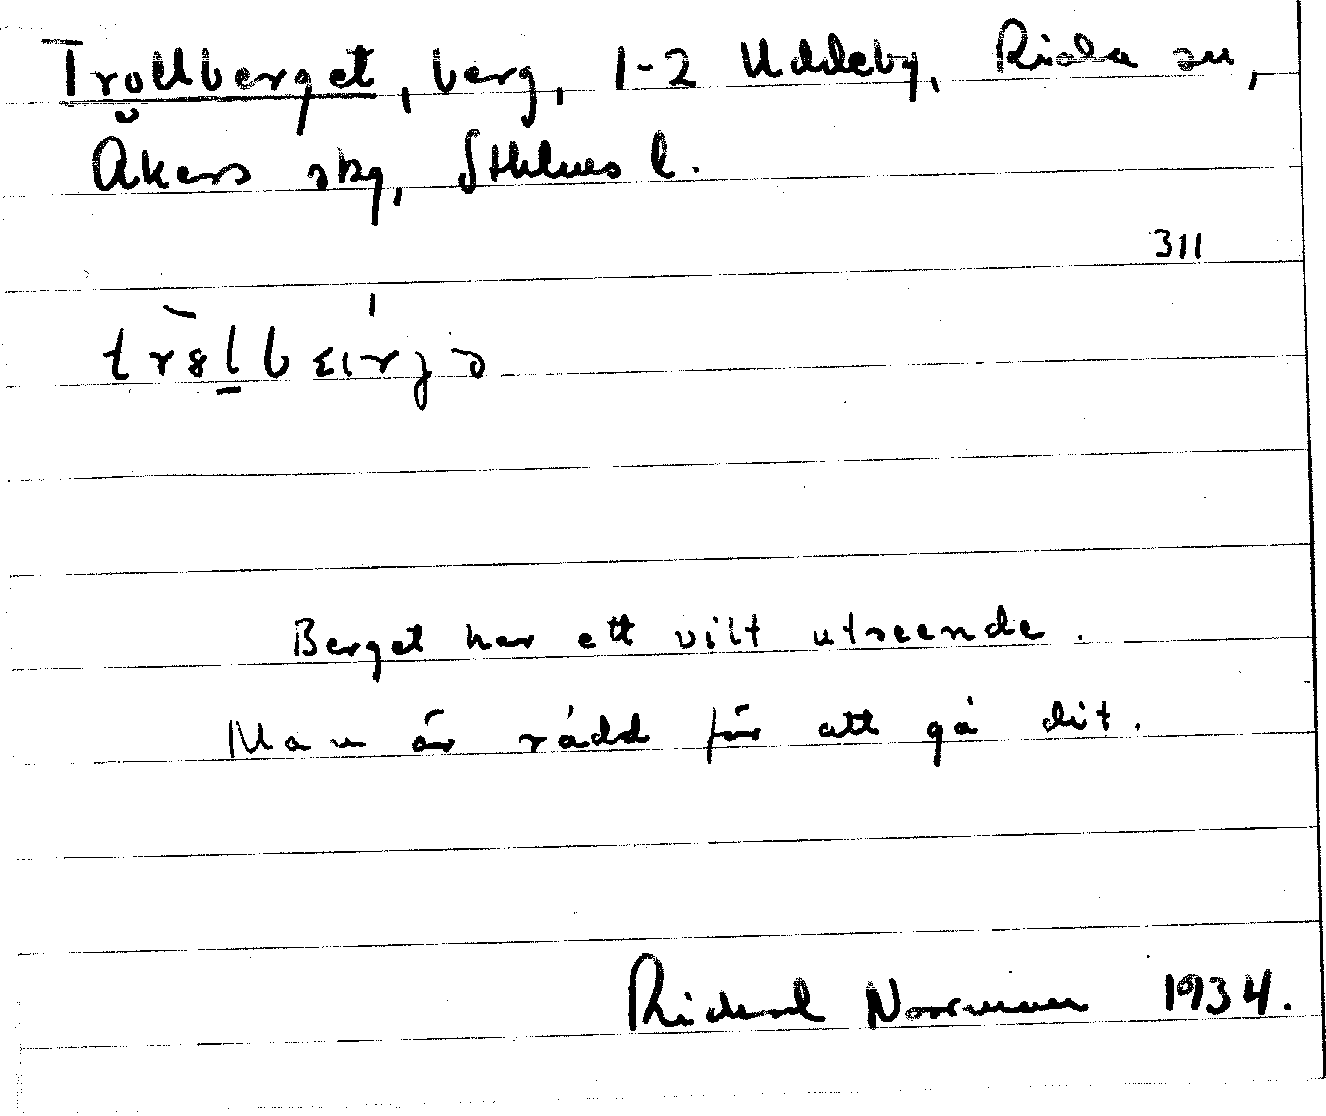 Trollberget, berg, 1-2 Uddeby, Riala sn,
Åkers skg, Sthlms l.
311
Berget har ett vilt utseende.
Man är rädd för att gå dit.
Rickard Norrman 1934.